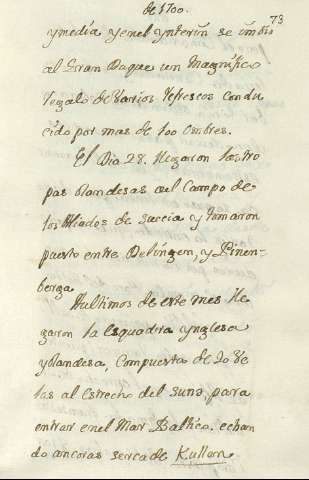 de 1700.
73
y media y en el ynterin se imbio
al Gran Duque un Magnifico
regalo de varios refrescos condu
cido por mas de 100 ombres.
El Dia 28. llegaron las tro
pas olandesas al Campo de
los Aliados de Suecia y tomaron
puesto entre Delingen, y Pinen-
berga
A ultimos de este mes lle
garon la esquadra ynglesa
y olandesa, Compuesta de 20 Ve
las al estrecho del Sund, para
entrar en el Mar Baltico. echan
do ancoras serca de Kullen